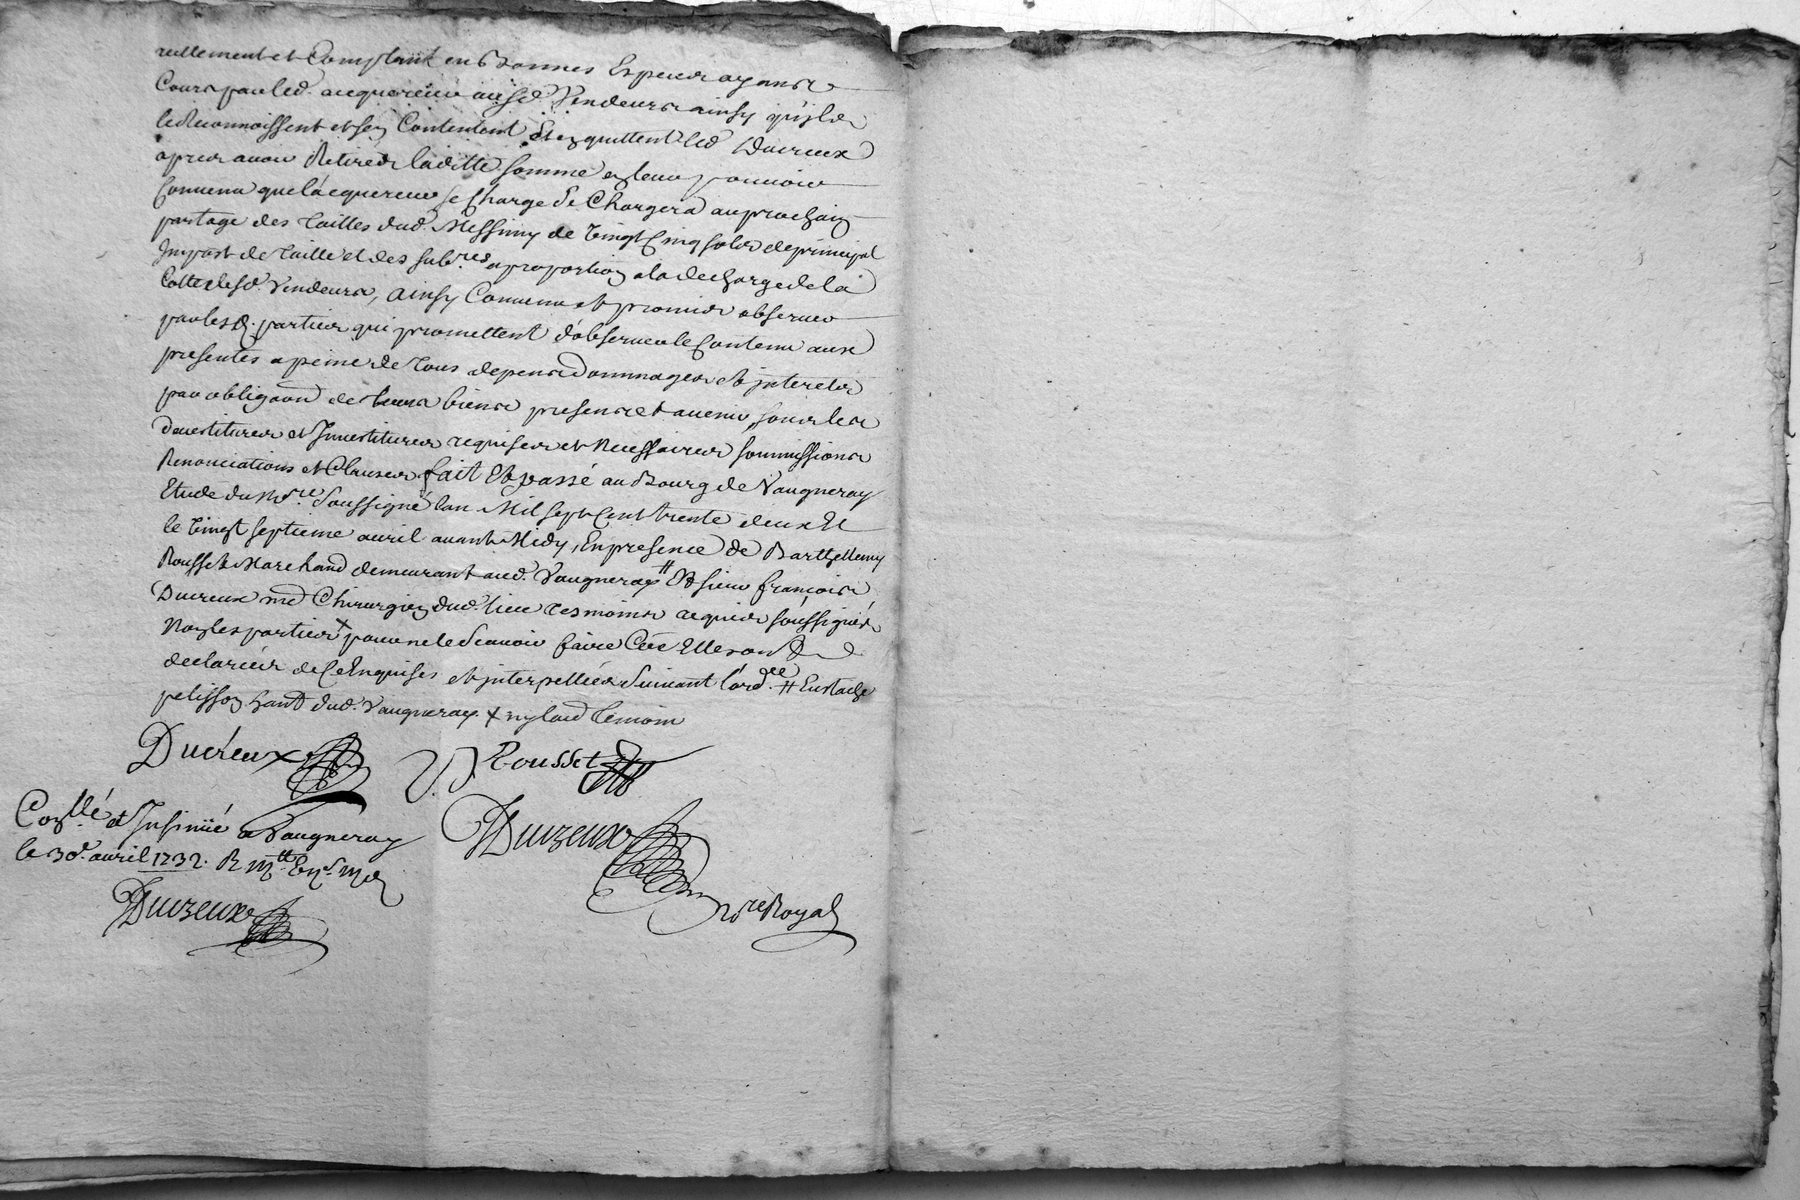 reellement et Comptant en bonnes Especes ayants
Cours par led. acquereur ausd. Vendeurs ainsy quils
le Reconnoissent et sen Contentent Et en quittent led Ducreux
apres avoir Retirés laditte somme en leur pouvoir
Convenu que lacquereur se charge Et Chargera au prochain
partage des Tailles dud. Messimy de Vingt Cinq sols de principal
Impost de Taille et des sub.res a proportion a la decharge de la
Cotte desd. Vendeurs, ainsy Convenu et promis observer
par lesd. parties qui promettent d'observer le Contenu aux
presentes a peine de tous depens Dommages et interets
par obligaon de leurs biens presents et avenir, sous les
devestitures et Investitures requises et Necessaires soumissions
Renonciations et Clauses. fait Et passé au Bourg de Vaugneray
Etude du No.re soussigné lan Mil sept Cent trente deux Et
le Vingt septieme avril avant Midy, En presence de Barthellemy
Rousset Marchand demeurant aud. Vaugneray # Et sieur françois
Ducreux md Chirurgien dud. lieu tesmoins requis soussignés
Non les parties + pour ne le scavoir faire Ce Elles ont
declarées de Ce Enquises et interpellées suivant lord.ce # Eustache
pelisson hant dud. Vaugneray + ny laud temoin
Ducreux Rousset
Con.llé et Insinüé a Vaugneray
le 30e. avril 1732. R
Ducreux
Ducreux
No.re Royal